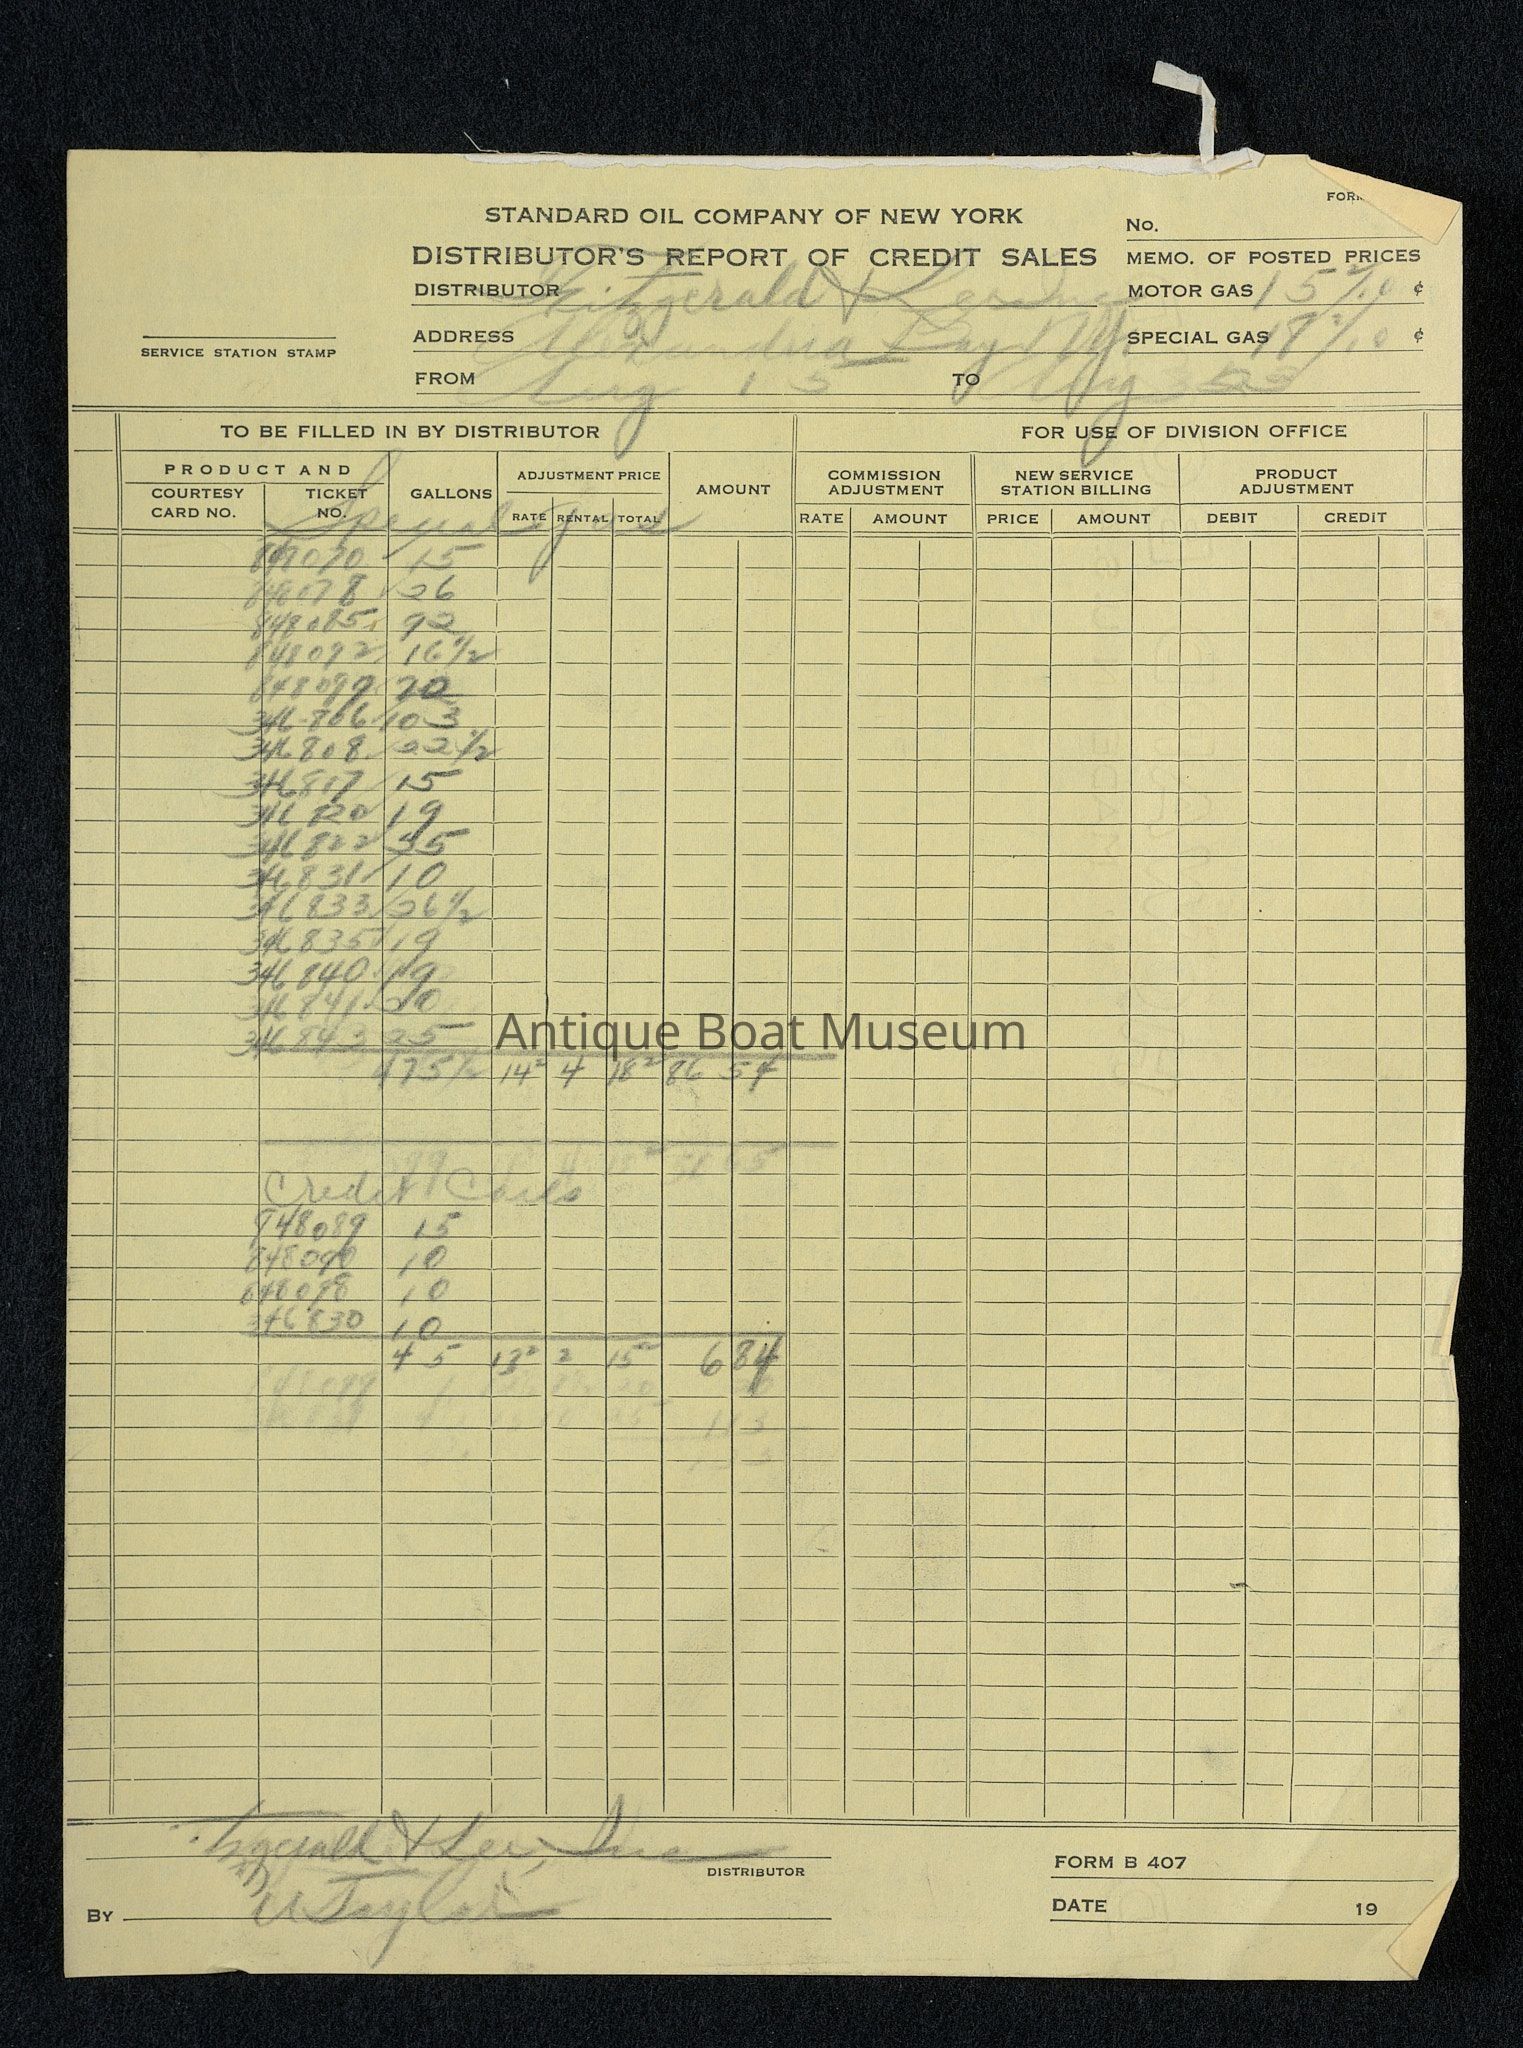 FORM
STANDARD OIL COMPANY OF NEW YORK
No.
DISTRIBUTOR'S REPORT OF CREDIT SALES
MEMO. OF POSTED PRICES
DISTRIBUTOR Fitzgerald & Lee Inc
MOTOR GAS 15 2/10 ¢
ADDRESS Alexandria Bay NY
SPECIAL GAS 18 2/10 ¢
SERVICE STATION STAMP
FROM Aug 15 TO Aug
TO BE FILLED IN BY DISTRIBUTOR
FOR USE OF DIVISION OFFICE
PRODUCT AND
COURTESY CARD NO. TICKET NO. GALLONS ADJUSTMENT PRICE RATE RENTAL TOTAL AMOUNT
COMMISSION ADJUSTMENT RATE AMOUNT
NEW SERVICE STATION BILLING PRICE AMOUNT
PRODUCT ADJUSTMENT DEBIT CREDIT
Special gas
848070 15
848078 26
848085 92
848092 16 1/2
848099 20
346806 103
346808 22 1/2
346817 15
346820 19
346822 35
346831 10
346833 26 1/2
346835 19
346840 19
346841 20
346843 25
Antique Boat Museum
475 1/2 14² 4 18² 86 54
Credit Cards
848089 15
848090 10
848098 10
346830 10
45 13² 2 15² 6 84
Fitzgerald & Lee, Inc
DISTRIBUTOR
FORM B 407
By Taylor
DATE 19